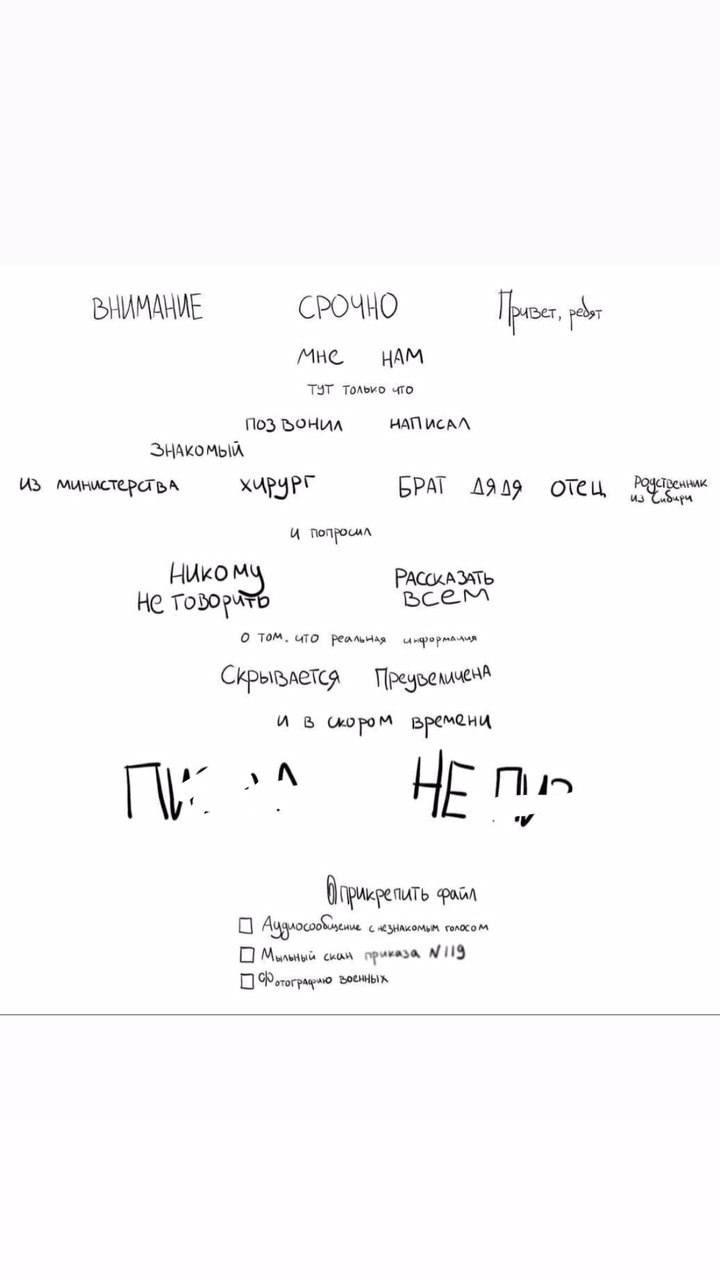 ВНИМАНИЕ СРОЧНО Привет, ребят
МНЕ НАМ
ТУТ ТОЛЬКО ЧТО
ПОЗВОНИЛ НАПИСАЛ
ЗНАКОМЫЙ
ИЗ МИНИСТЕРСТВА ХИРУРГ БРАТ ДЯДЯ ОТЕЦ Родственник
из Сибири
и попросил
НИКОМУ РАССКАЗАТЬ
НЕ ГОВОРИТЬ ВСЕМ
О ТОМ. ЧТО реальная информация
Скрывается Преувеличена
и в скором времени
НЕ
Прикрепить файл
Аудиосообщение с незнакомым голосом
Мыльный скан приказа №119
Фотографию военных